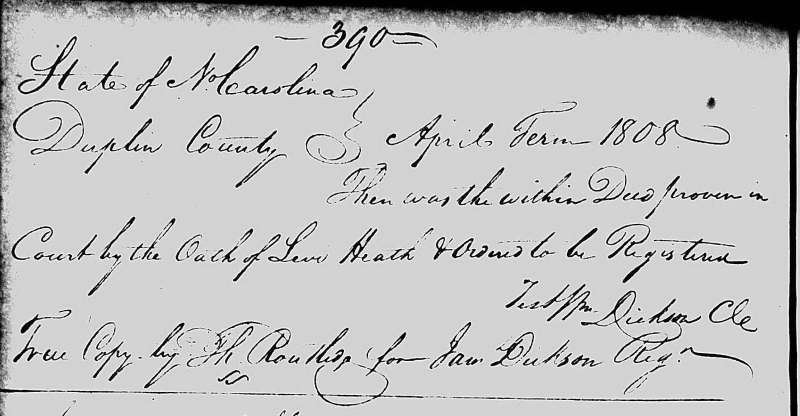 — 390 —
State of No. Carolina
Duplin County } April Term 1808
Then was the within Deed proven in
Court by the Oath of Levi Heath & Ordered to be Registered
Test Wm Dickson Clk
True Copy by Th Routledge for Jas Dickson Regr